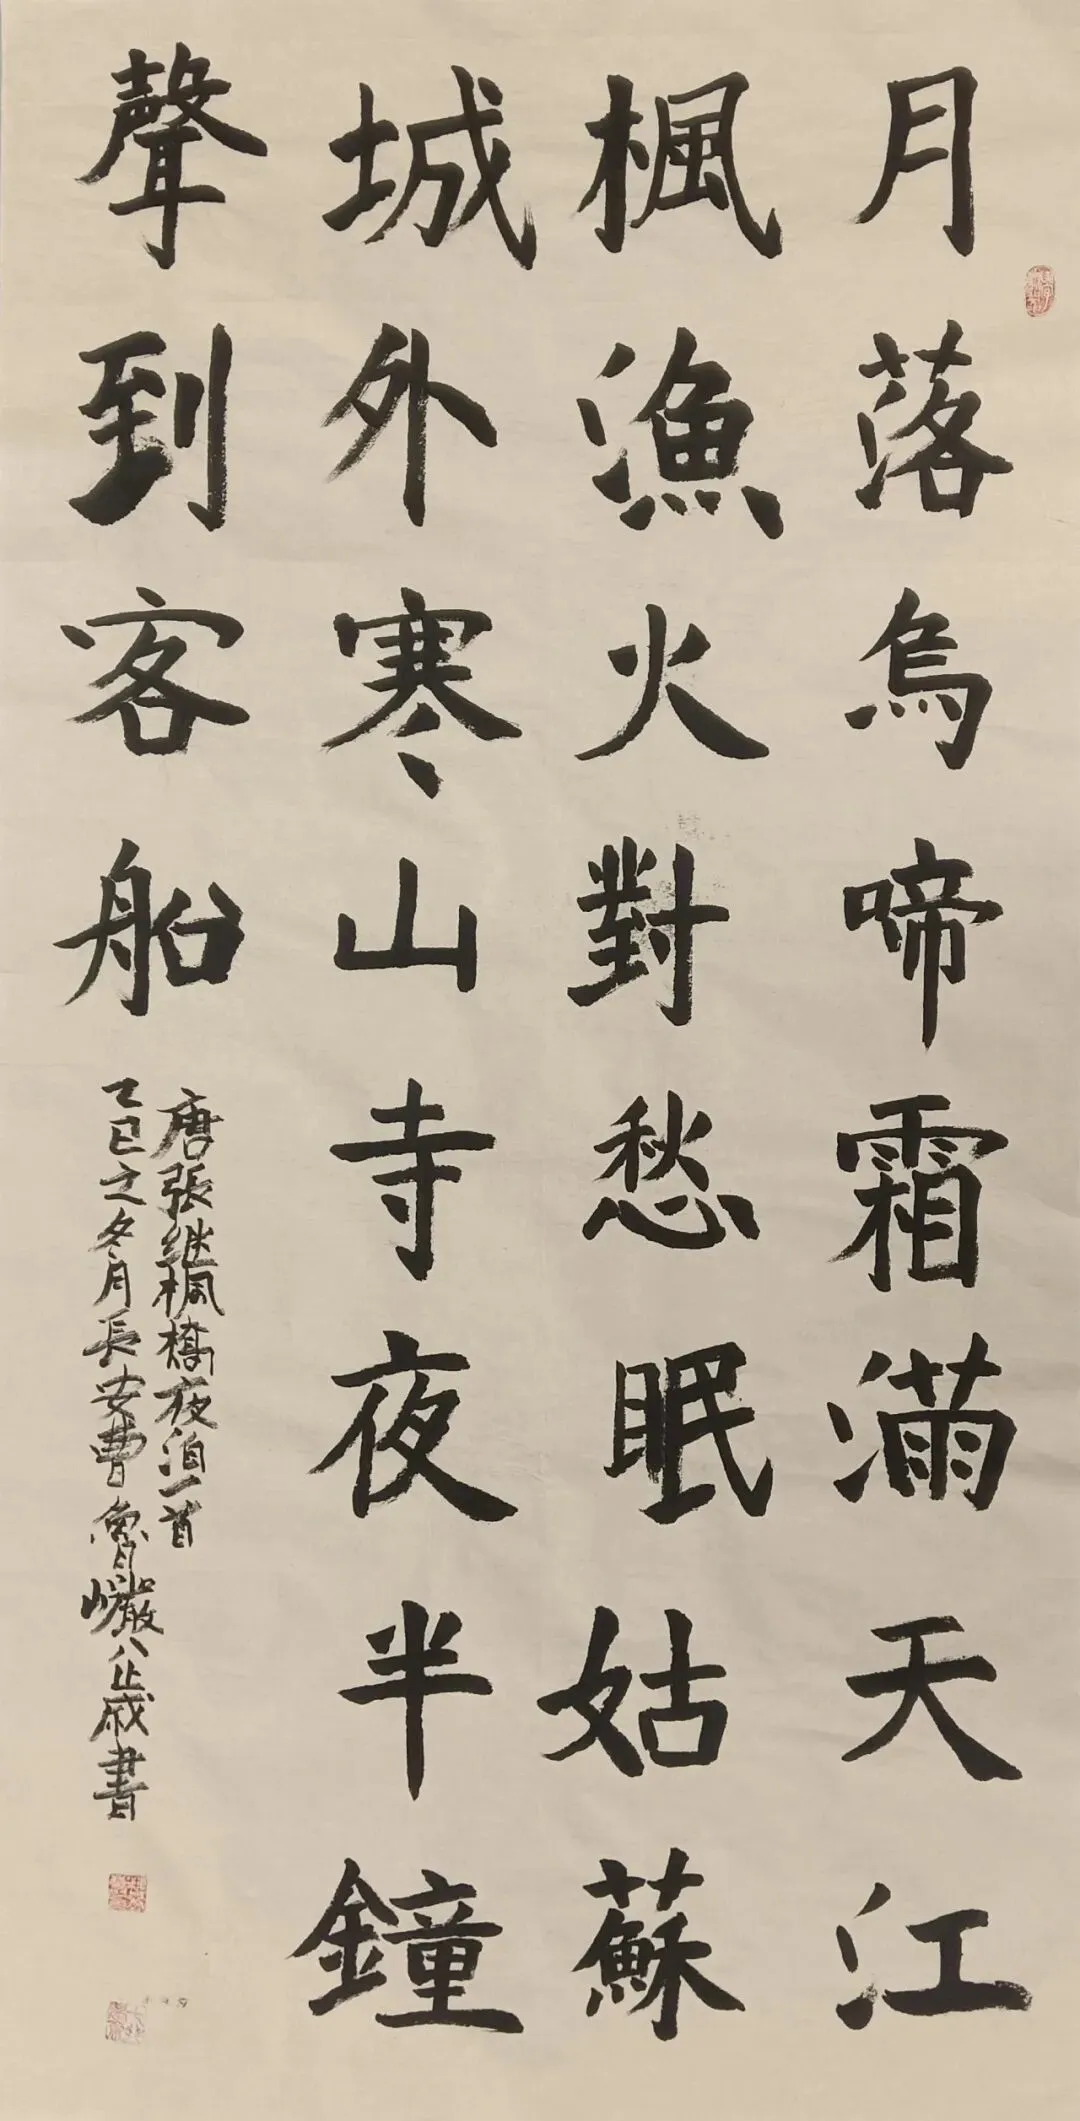 月落烏啼霜滿天江
楓漁火對愁眠姑蘇
城外寒山寺夜半鐘
聲到客船
唐張继楓橋夜泊一首
乙巳之冬月長安曹魯巖八止歲書